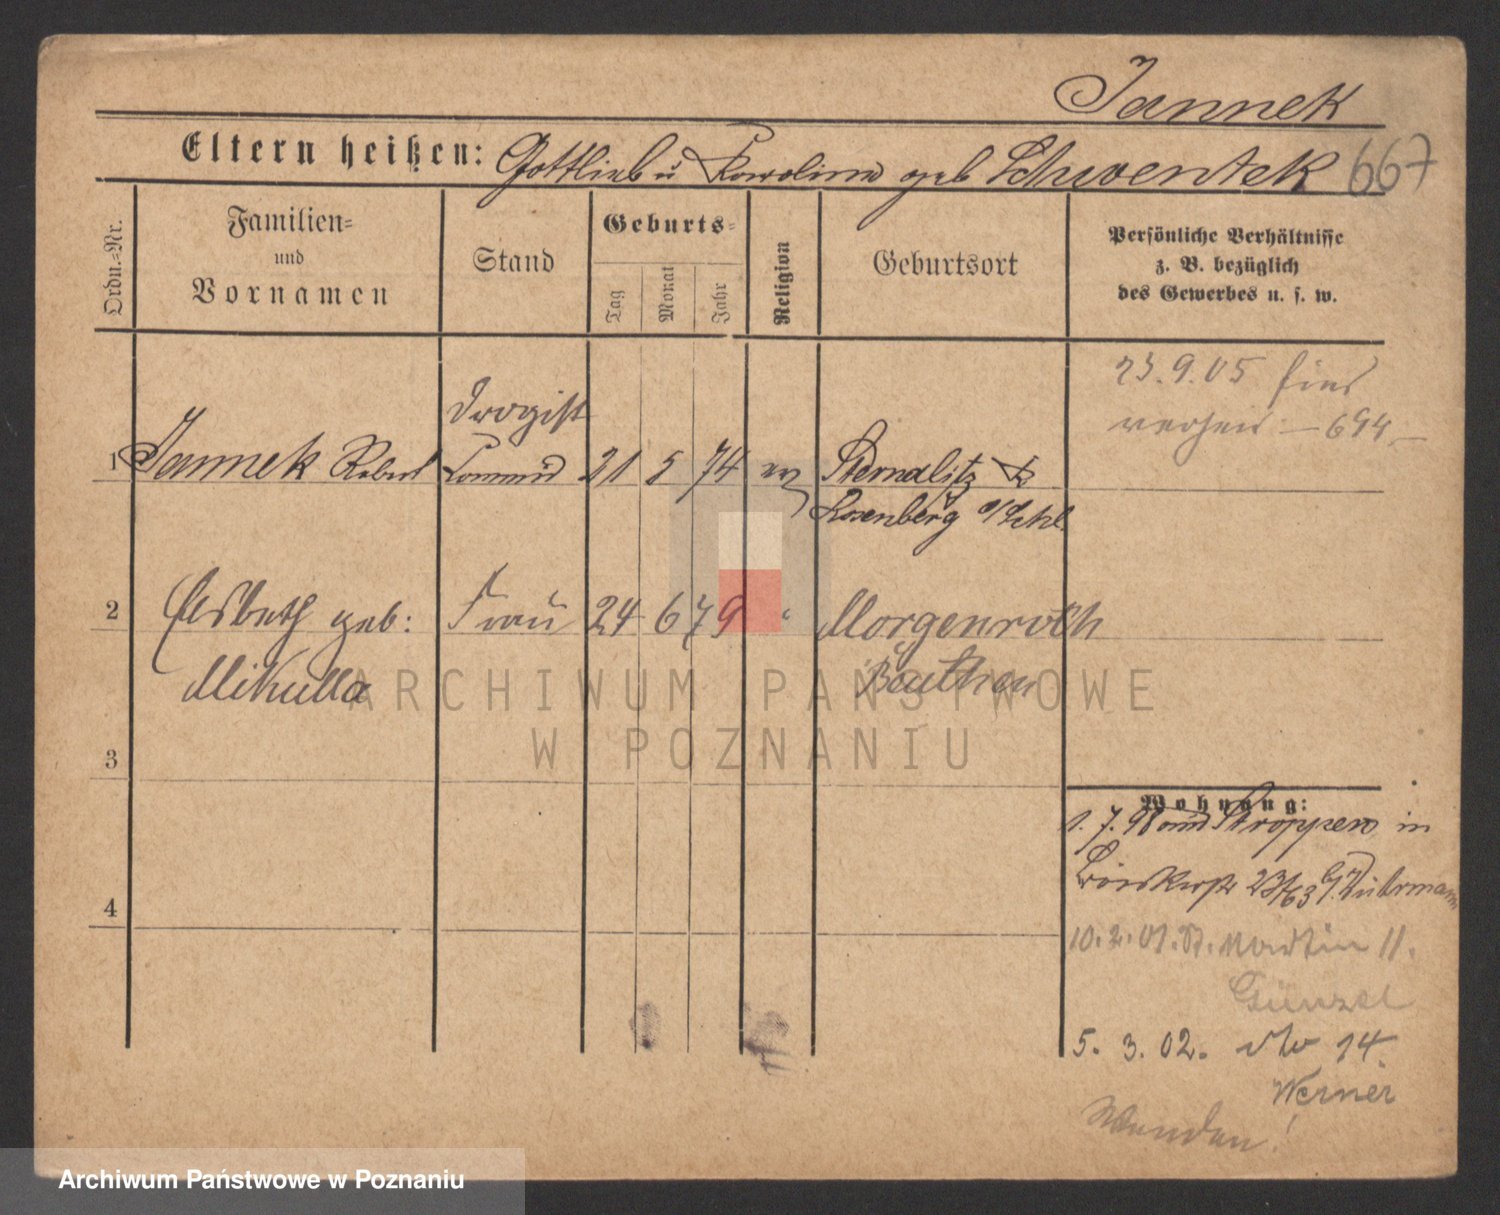 Jannek
Eltern heißen: Gottlieb u Karoline geb Schwentek 667
Ordn.-Nr.
Familien-
und
Vornamen
Stand
Geburts-
Tag
Monat
Jahr
Religion
Geburtsort
Persönliche Verhältnisse
z. B. bezüglich
des Gewerbes u. s. w.
23.9.05 hier
694
Drogist
1 Jannek Robert 21 5 74 ev Sternalitz Kr
Rosenberg O/Schl.
2 Elsbeth geb: Frau 24 6 79 " Morgenroth
Mikulla Beuthen
3
Wohnung:
1.7.98 aus Stroppen in
4
10.2.01. St. Martin 11.
Günzel
5. 3. 02. dto 14.
Werner
Wenden!
ARCHIWUM PAŃSTWOWE
W POZNANIU
Archiwum Państwowe w Poznaniu